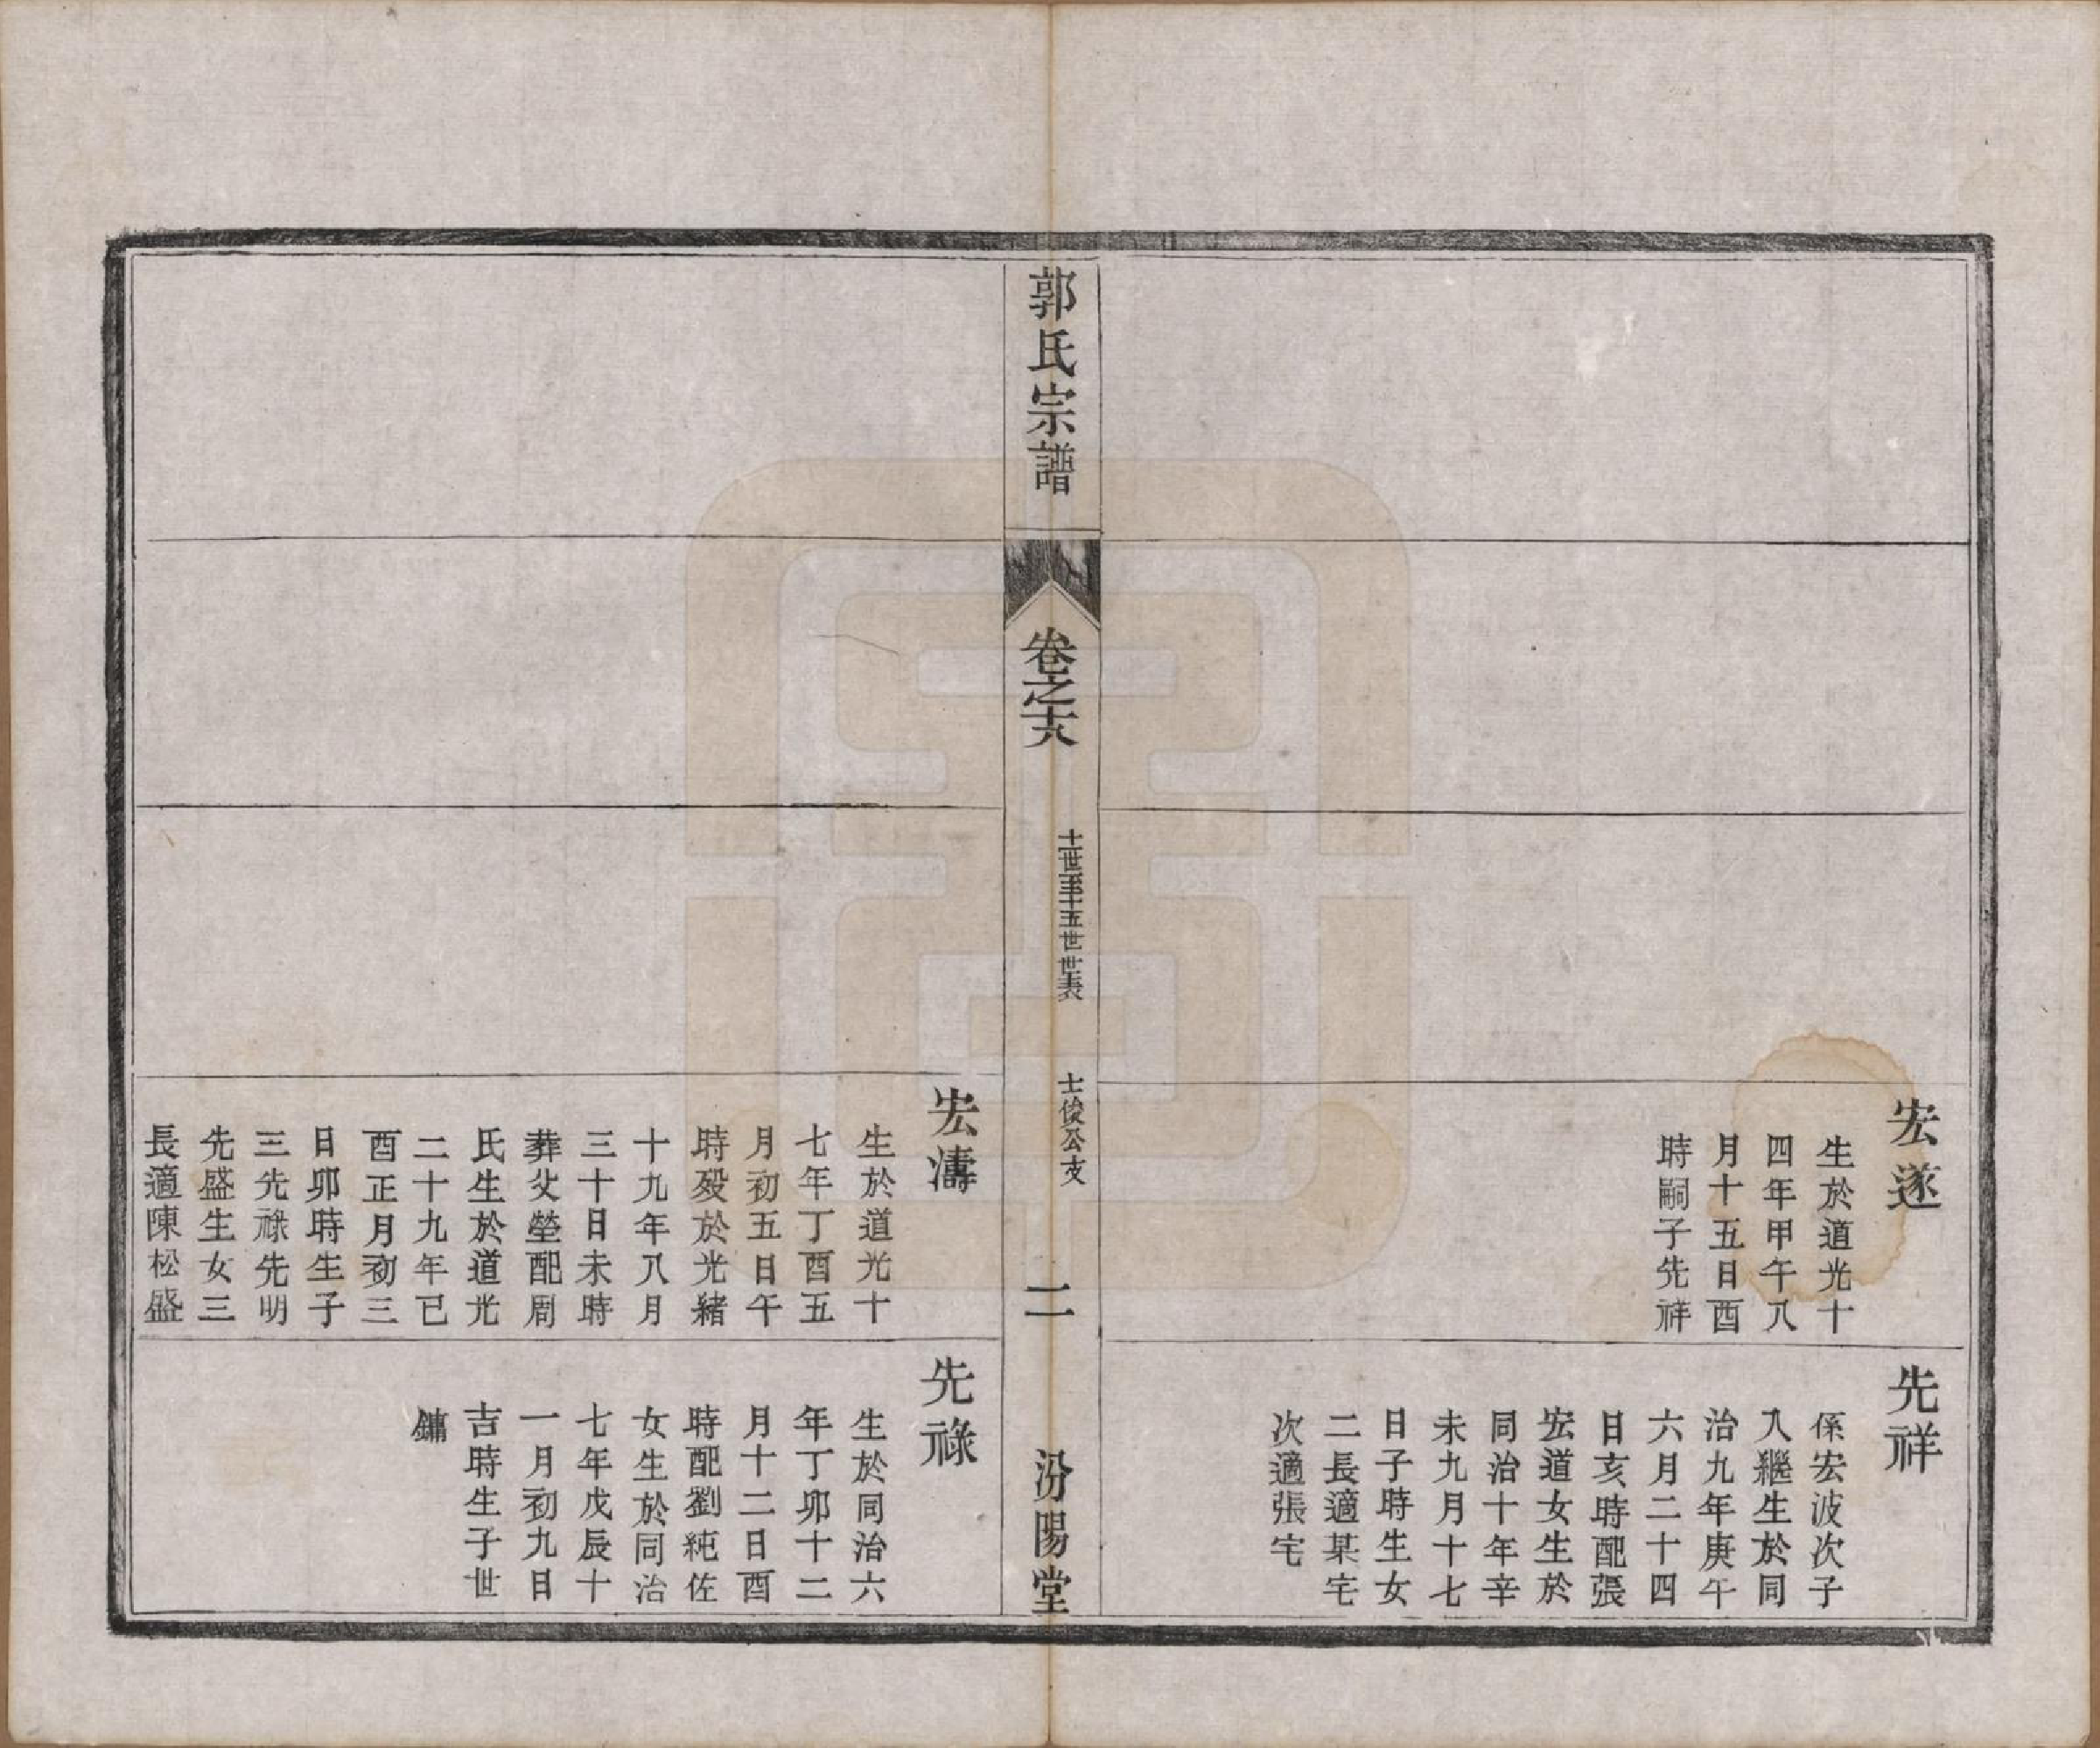 宏遂
生於道光十
四年甲午八
月十五日酉
時嗣子先祥
先祥
係宏波次子
入繼生於同
治九年庚午
六月二十四
日亥時配張
宏道女生於
同治十年辛
未九月十七
日子時生女
二長適某宅
次適張宅
郭氏宗譜
卷之十六
十一世至十五世世表
士俊公支
二
汾陽堂
宏濤
生於道光十
七年丁酉五
月初五日午
時殁於光緒
十九年八月
三十日未時
葬父塋配周
氏生於道光
二十九年已
酉正月初三
日卯時生子
三先祿先明
先盛生女三
長適陳松盛
先祿
生於同治六
年丁卯十二
月十二日酉
時配劉純佐
女生於同治
七年戊辰十
一月初九日
吉時生子世
鏞